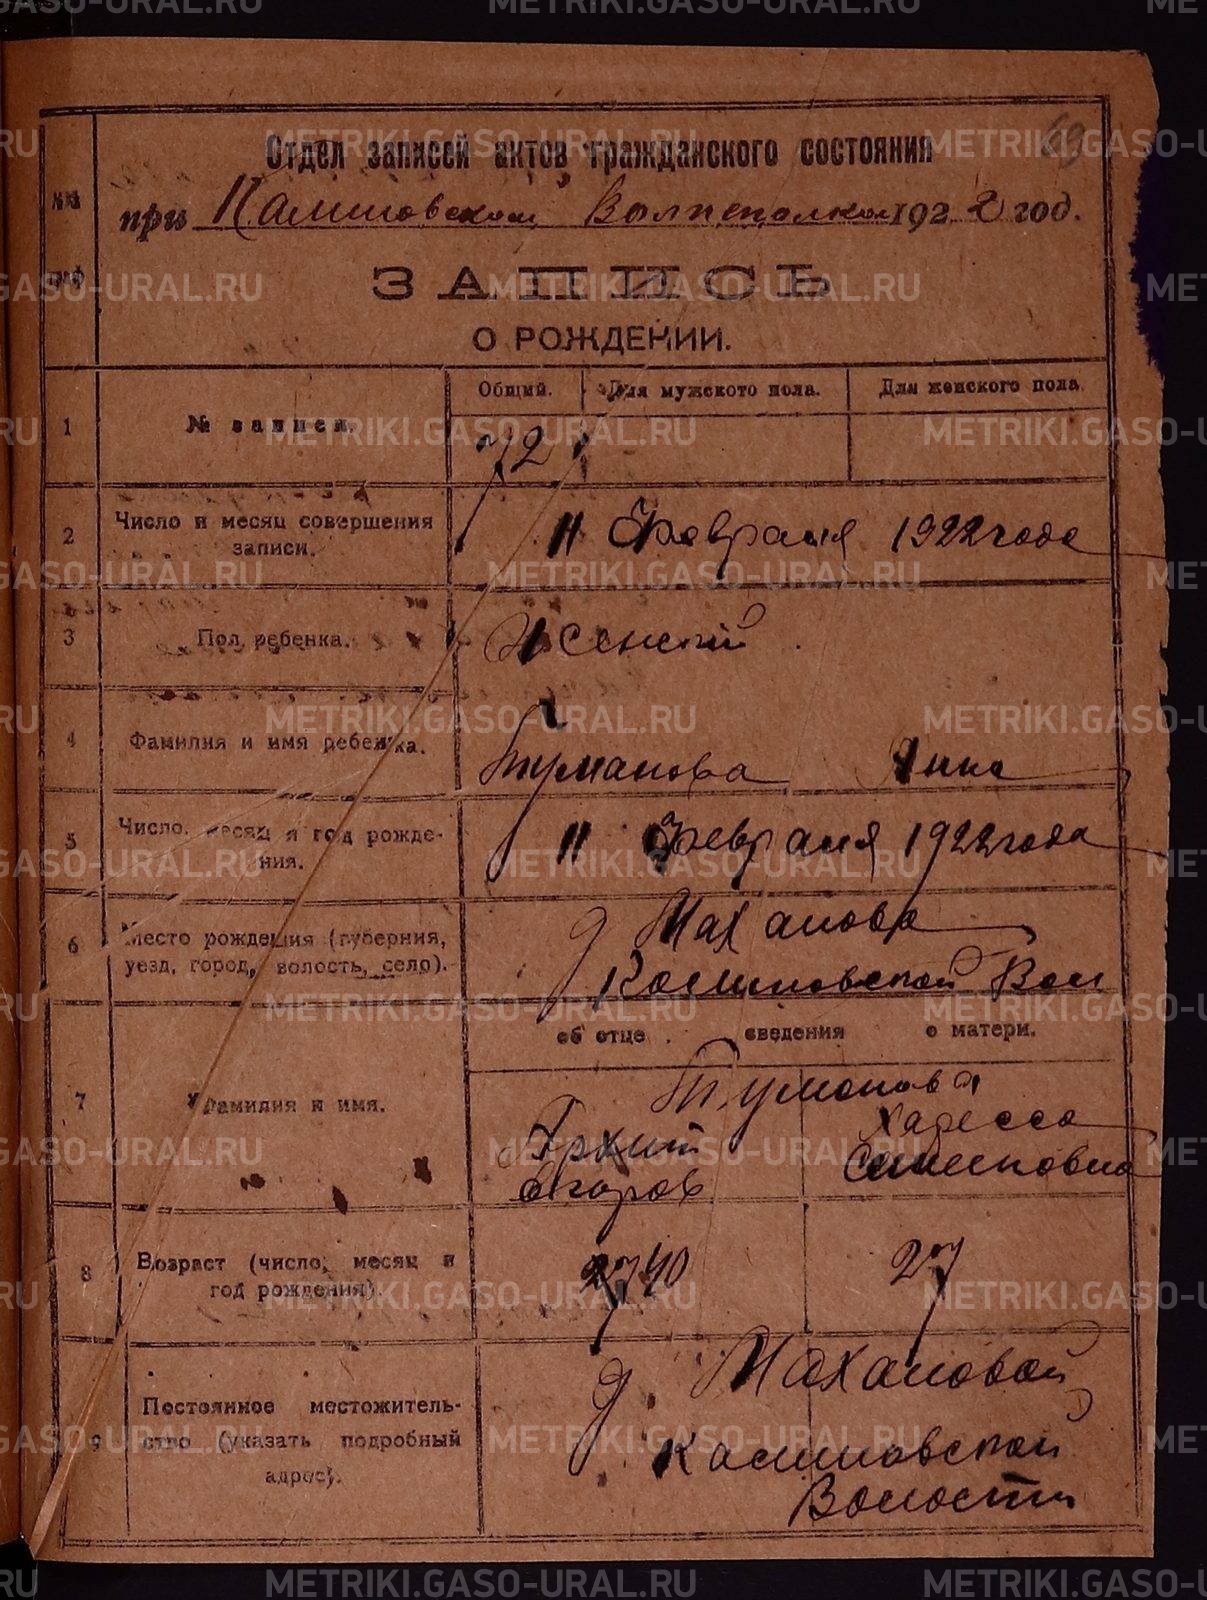 Отдел записей актов гражданского состояния
при Калиновском 1922 год.
№№ граф
ЗАПИСЬ
О РОЖДЕНИИ.
Общий. Для мужского пола. Для женского пола
1 № записи. 72
2 Число и месяц совершения записи. 11 Февраля 1922 года
3 Пол ребенка. Женский
4 Фамилия и имя ребенка. Туманова Анна
5 Число, месяц и год рожде-
ния. 11 Февраля 1922 года
6 Место рождения (губерния, д Маханова
уезд, город, волость, село). Калиновской Вол
об отце сведения о матери.
7 Фамилия и имя. Туманова
Архип
Егоров Семеновна
8 Возраст (число, месяц и 40 27
год рождения).
9 Постоянное местожитель- д. Махановой
ство (указать подробный Калиновской
адрес). Волости
METRIKI.GASO-URAL.RU